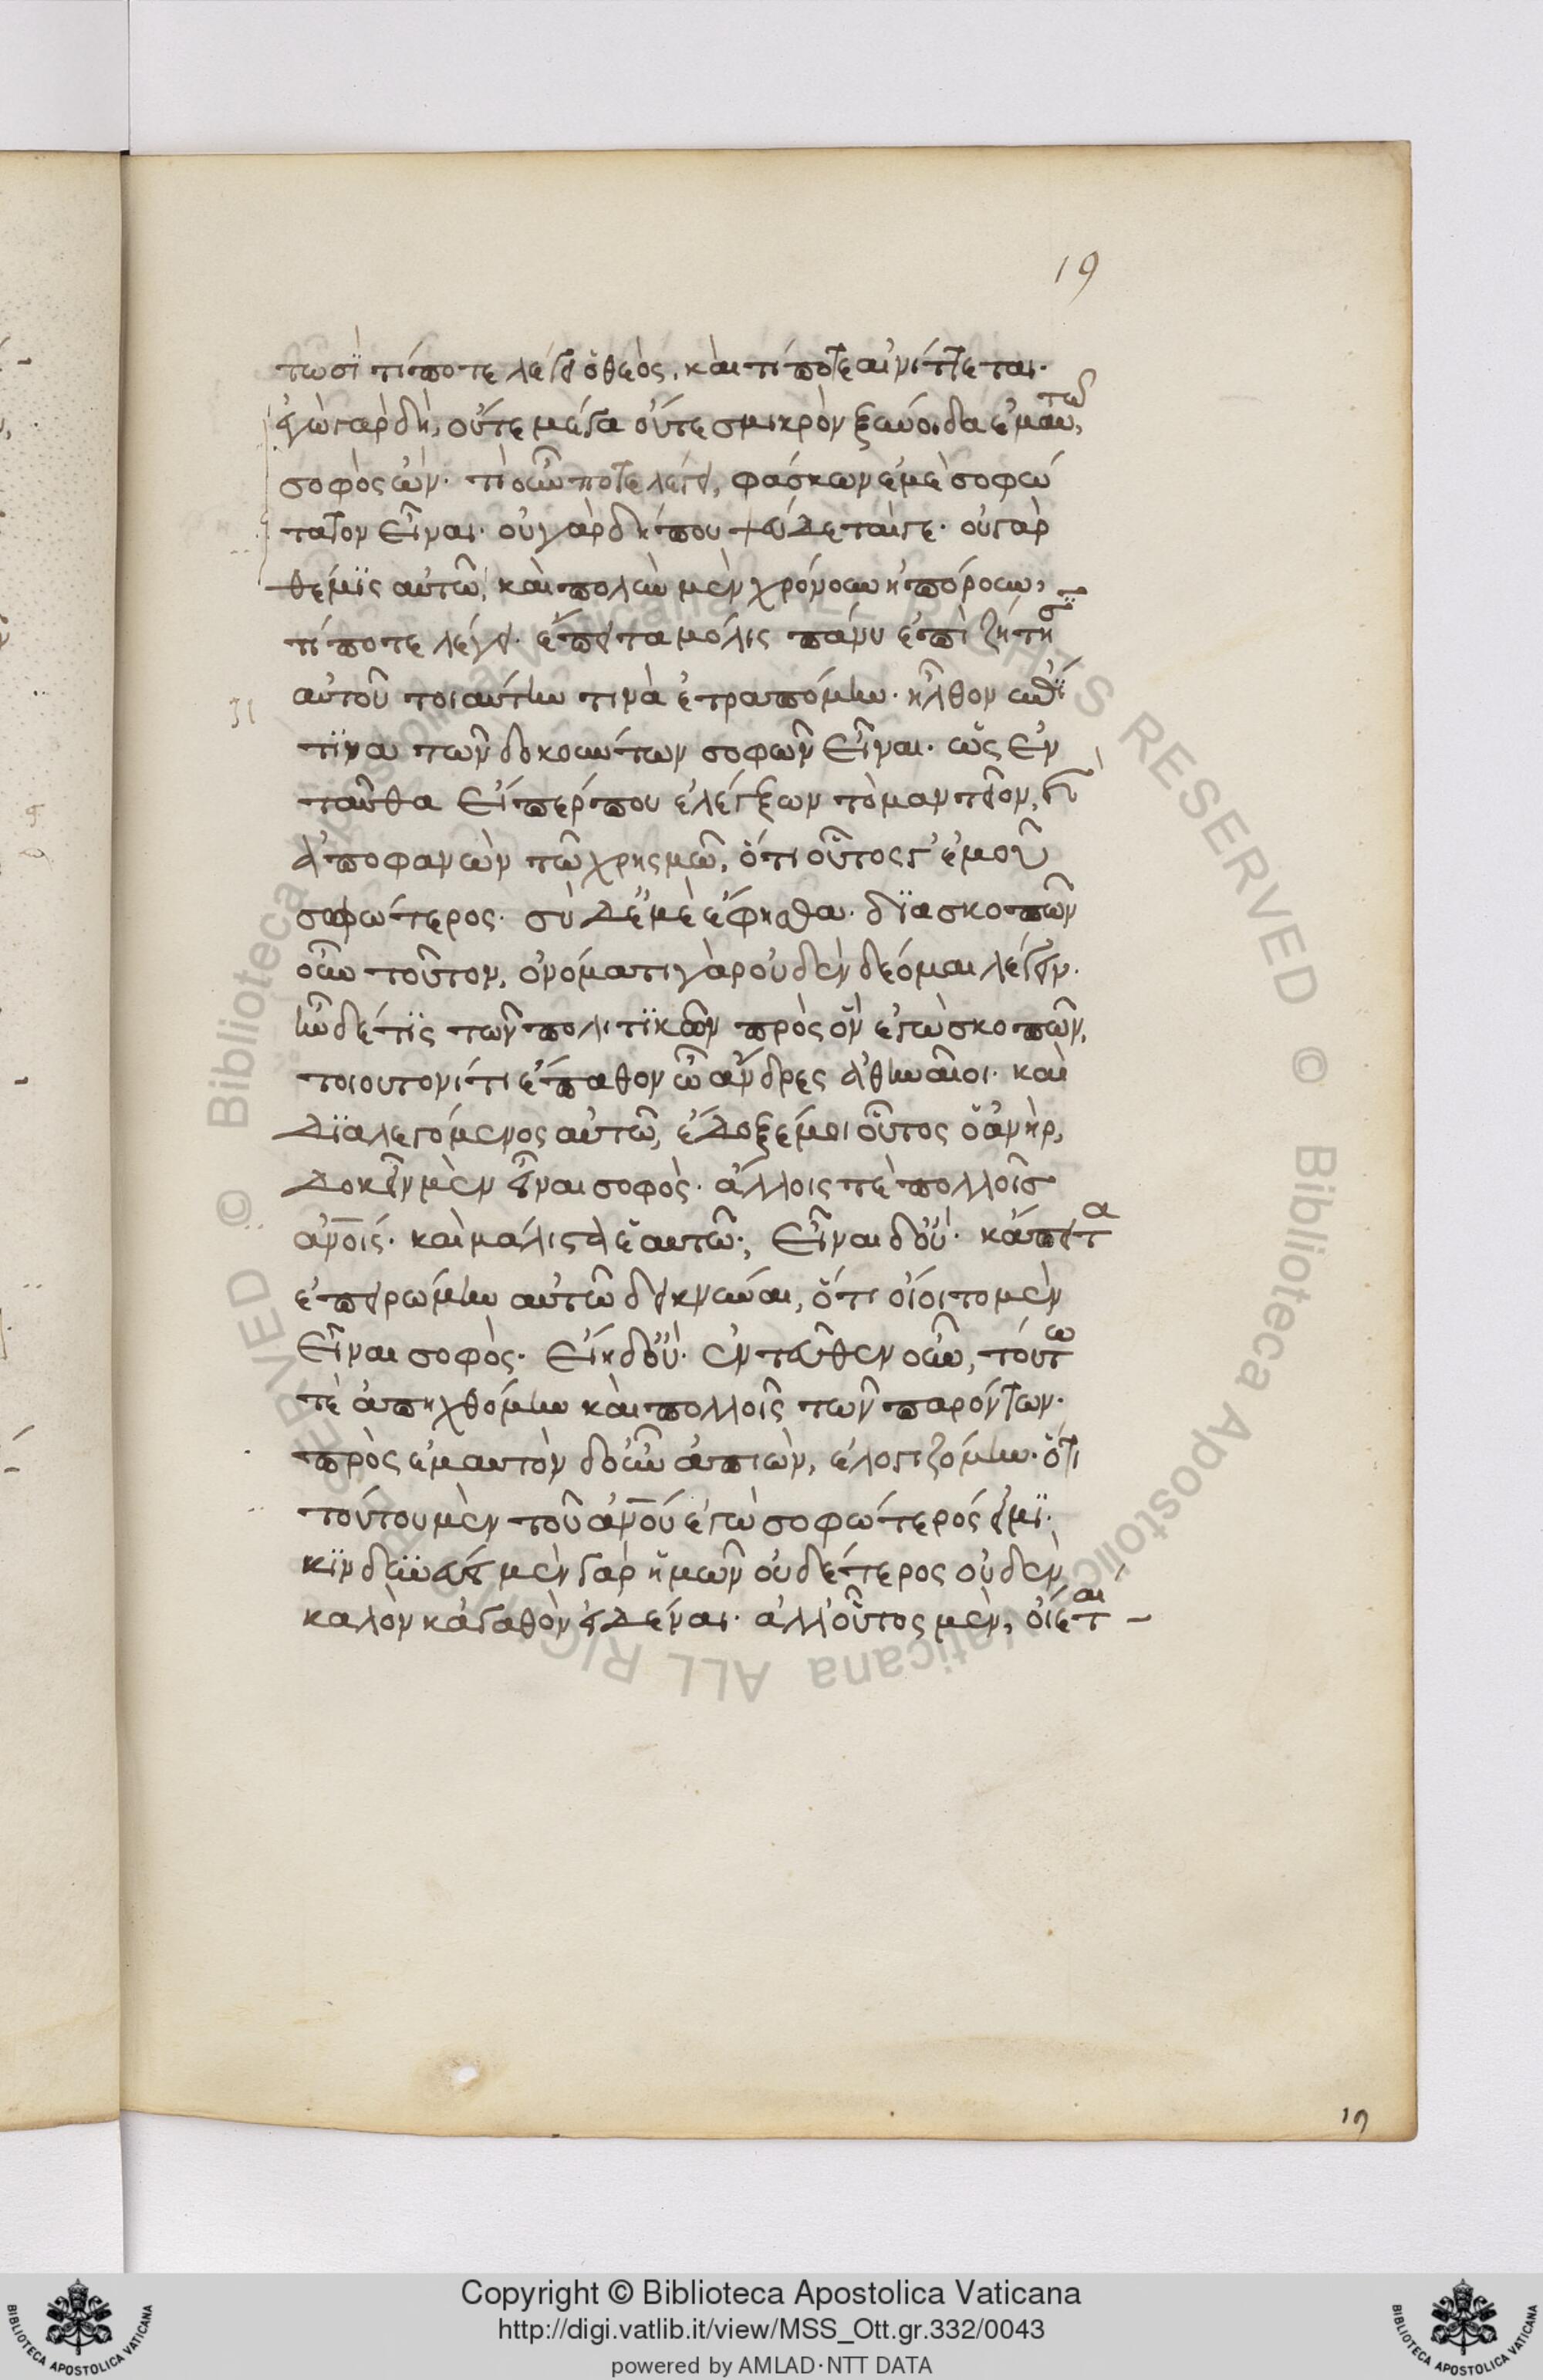 19
τωσὶ τί ποτε λέγει ὁ θεὸς, καὶ τί ποτε αἰνίττεται·
ἐγὼ γὰρ δὴ, οὔτε μέγα οὔτε σμικρὸν ξύνοιδα ἐμαυτῶ,
σοφὸς ὤν· τί οὖν ποτε λέγει, φάσκων ἐμὲ σοφώ
τατον εἶναι· οὐ γὰρ δήπου ψεύδεταί γε· οὐ γὰρ
θέμϊς αὐτῶ, καὶ πολὺν μὲν χρόνον ἠπόρουν,
τί ποτε λέγει· ἔπειτα μόλις πάνυ ἐπὶ ζήτησιν
αὐτοῦ τοιαύτην τινὰ ἐτραπόμην· ἦλθον ἐπί
τϊνα τῶν δοκούντων σοφῶν εἶναι· ὡς ἐν
ταῦθα εἴπέρ που ἐλέγξων τὸ μαντεῖον, καὶ
ἀποφανὼν τῶ χρησμῶ, ὅτι οὗτος γ' ἐμοῦ
σοφώτερος· σὺ δ' ἐμὲ ἔφησθα· δϊασκοπῶν
οὖν τοῦτον, ὀνόματι γὰρ οὐδὲν δέομαι λέγειν·
ἦν δέ τϊς τῶν πολιτϊκῶν πρὸς ὃν ἐγὼ σκοπῶν,
τοιουτονί τι ἔπαθον ὦ ἄνδρες ἀθηναῖοι· καὶ
δϊαλεγόμενος αὐτῶ, ἔδοξέ μοι οὗτος ὁ ἀνὴρ,
δοκεῖν μὲν εἶναι σοφὸς· ἄλλοις τὲ πολλοῖσ
ἀνοις· καὶ μάλιστα ἑαυτῶ·, εἶναι δ' οὔ· κἄπειτα
ἐπειρώμην αὐτῶ δεικνύναι, ὅτι οἴοιτο μὲν
εἶναι σοφὸς· εἴη δ' οὔ· ἐντεῦθεν οὖν, τούτω
τὲ ἀπηχθόμην καὶ πολλοῖς τῶν παρόντων·
πρὸς ἐμαυτὸν δ' οὖν ἀπιὼν, ἐλογιζόμην· ὅτι
τούτου μὲν τοῦ ἀνου ἐγὼ σοφώτερός εἰμϊ·
κϊνδυνεύει μὲν γὰρ ἡμῶν οὐδέτερος οὐδὲν
καλὸν κἀγαθὸν εἰδέναι· ἀλλ' οὗτος μὲν, οἴεται
19
Copyright © Biblioteca Apostolica Vaticana
http://digi.vatlib.it/view/MSS_Ott.gr.332/0043
powered by AMLAD·NTT DATA